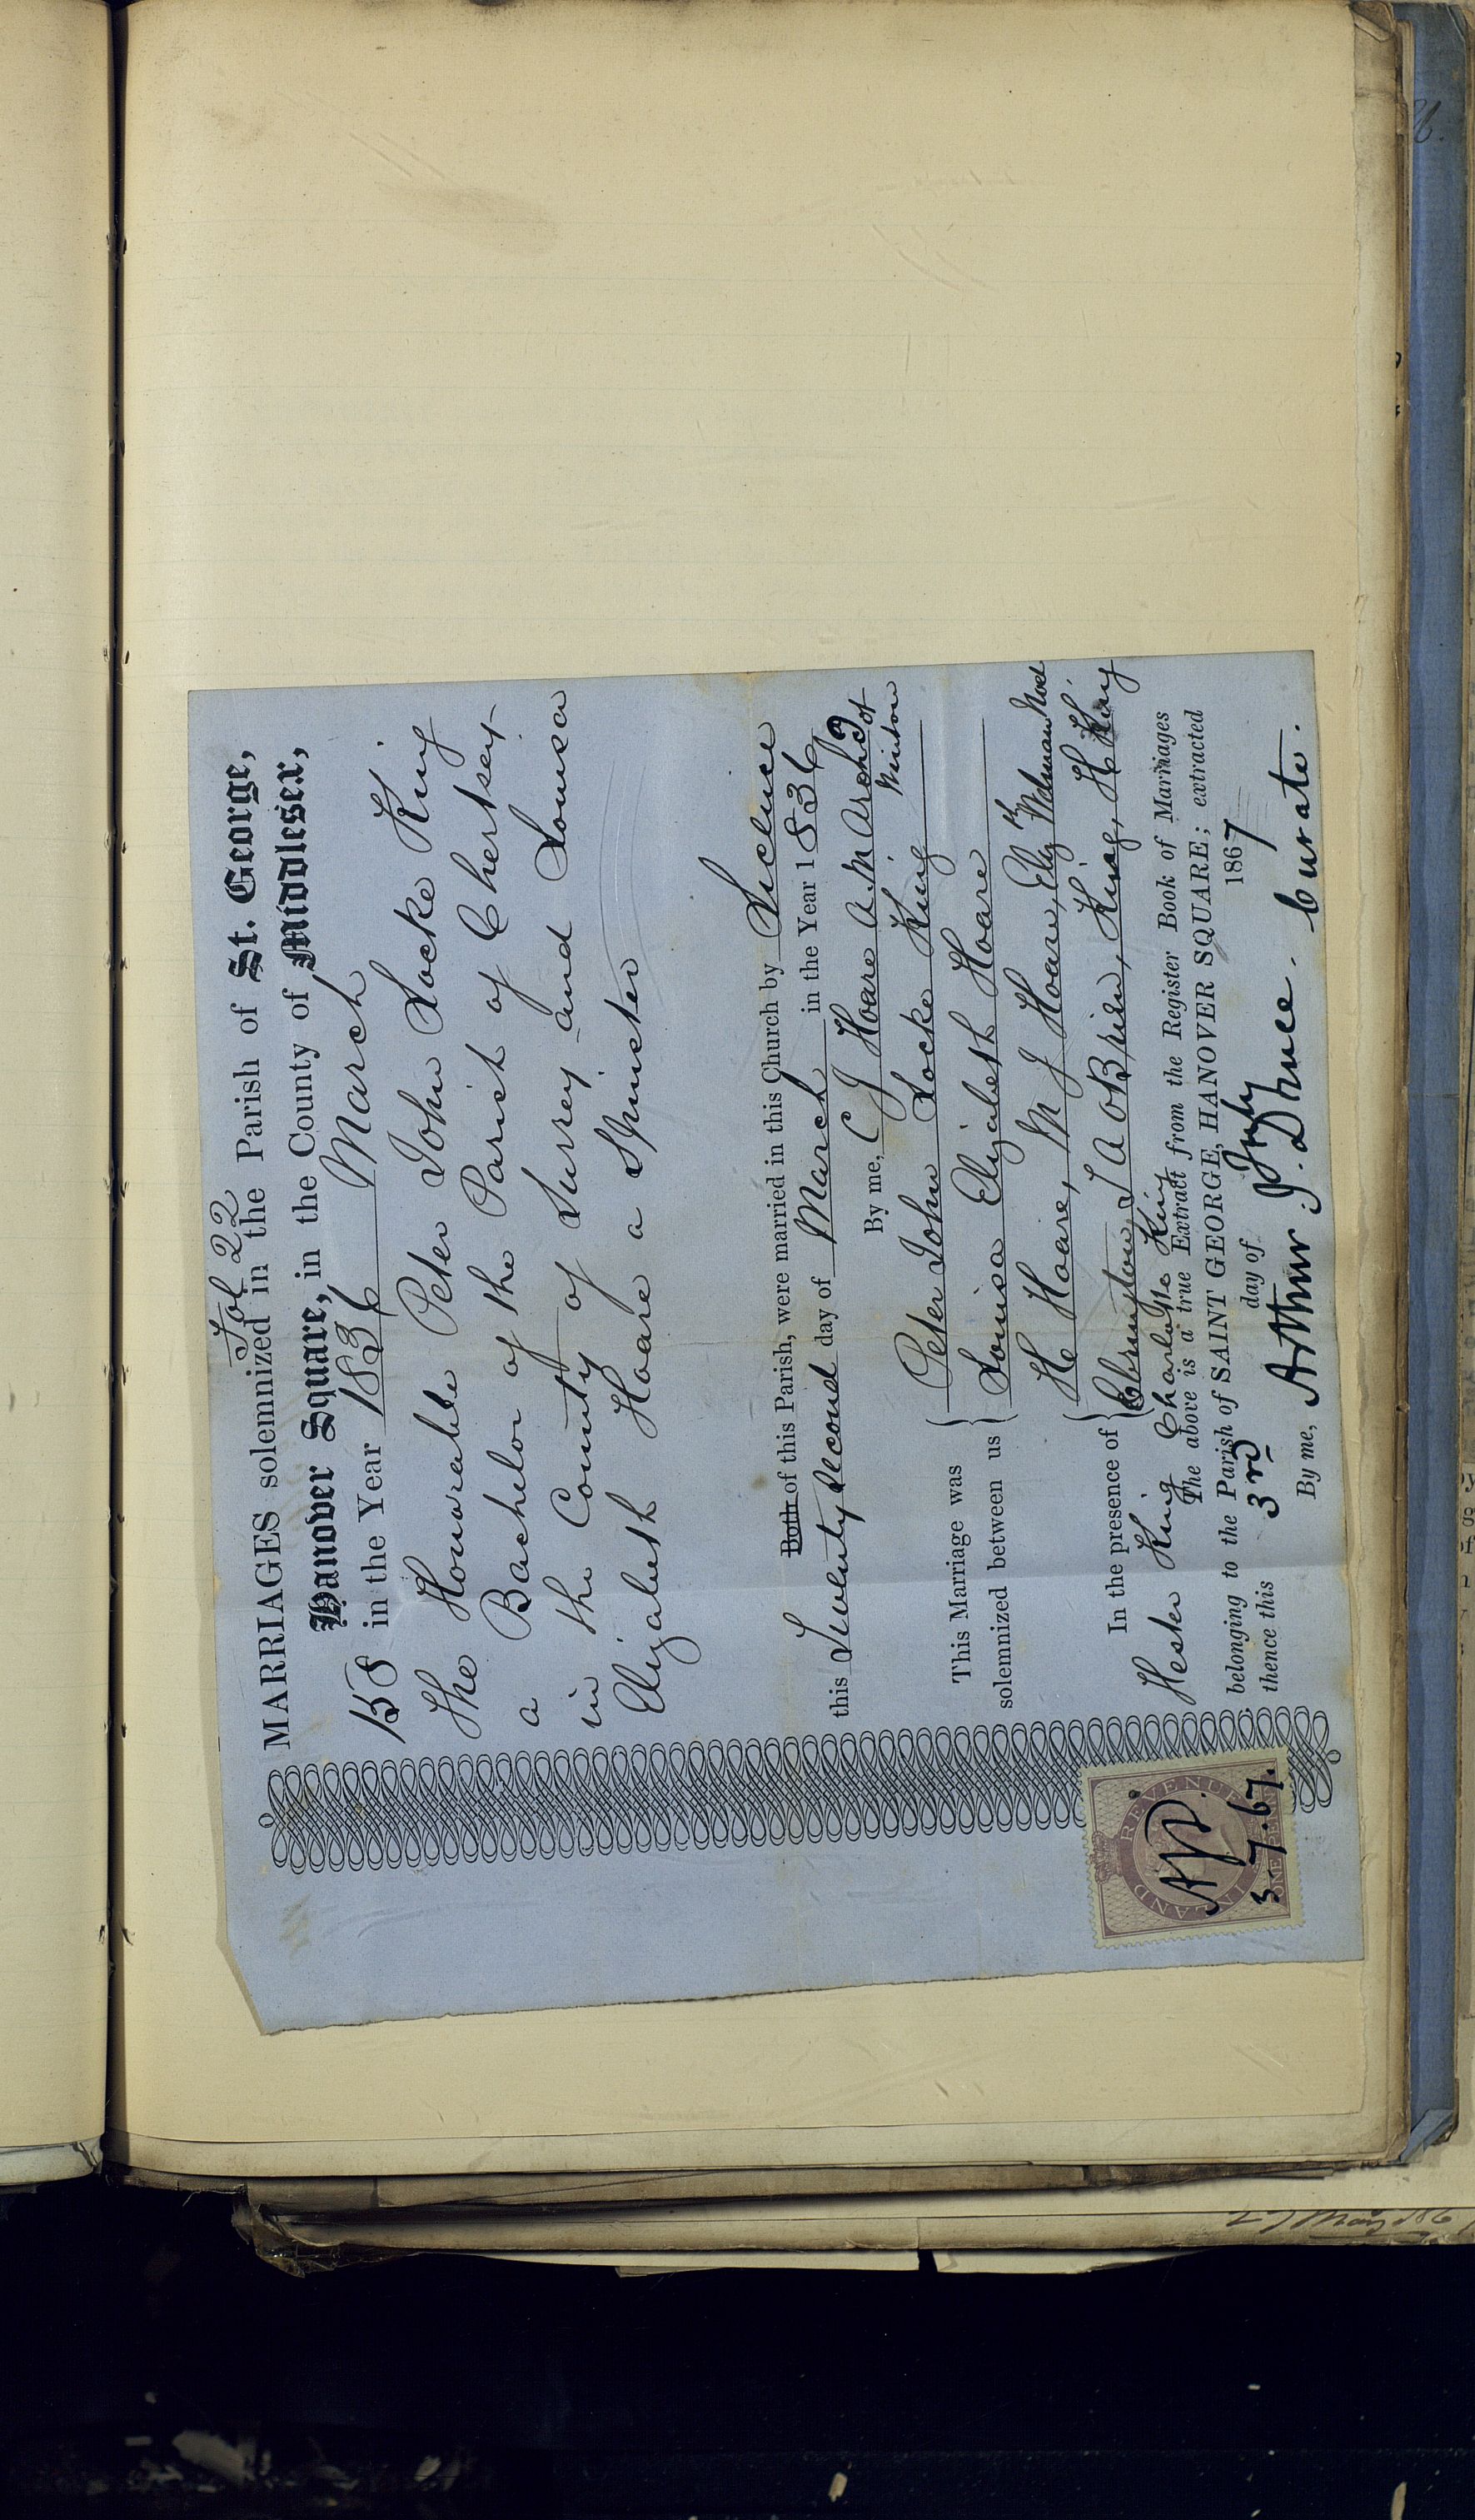 Fol 22
MARRIAGES solemnized in the Parish of St. George,
Hanover Square, in the County of Middlesex,
in the Year 1836 March
158
The Honorable Peter John Locke King
a Bachelor of the Parish of Chertsey
in the County of Surrey and Louisa
Elizabeth Hoare a Spinster
Both of this Parish, were married in this Church by Licence
this Twenty Second day of March in the Year 1836
By me, C J Hoare A.M. Archd of
Winton
This Marriage was
solemnized between us { Peter John Locke King
Louisa Elizabeth Hoare
In the presence of { H Hoare, M J Hoare, Elizth Welman Noel
Ebrington, L A OBrien, King, H King
Hester King Charlotte King
The above is a true Extract from the Register Book of Marriages
belonging to the Parish of SAINT GEORGE, HANOVER SQUARE; extracted
thence this 3rd day of July 1867
By me, Arthur J. Druce. Curate.
INLAND REVENUE
ONE PENNY
AJD.
3.7.67.